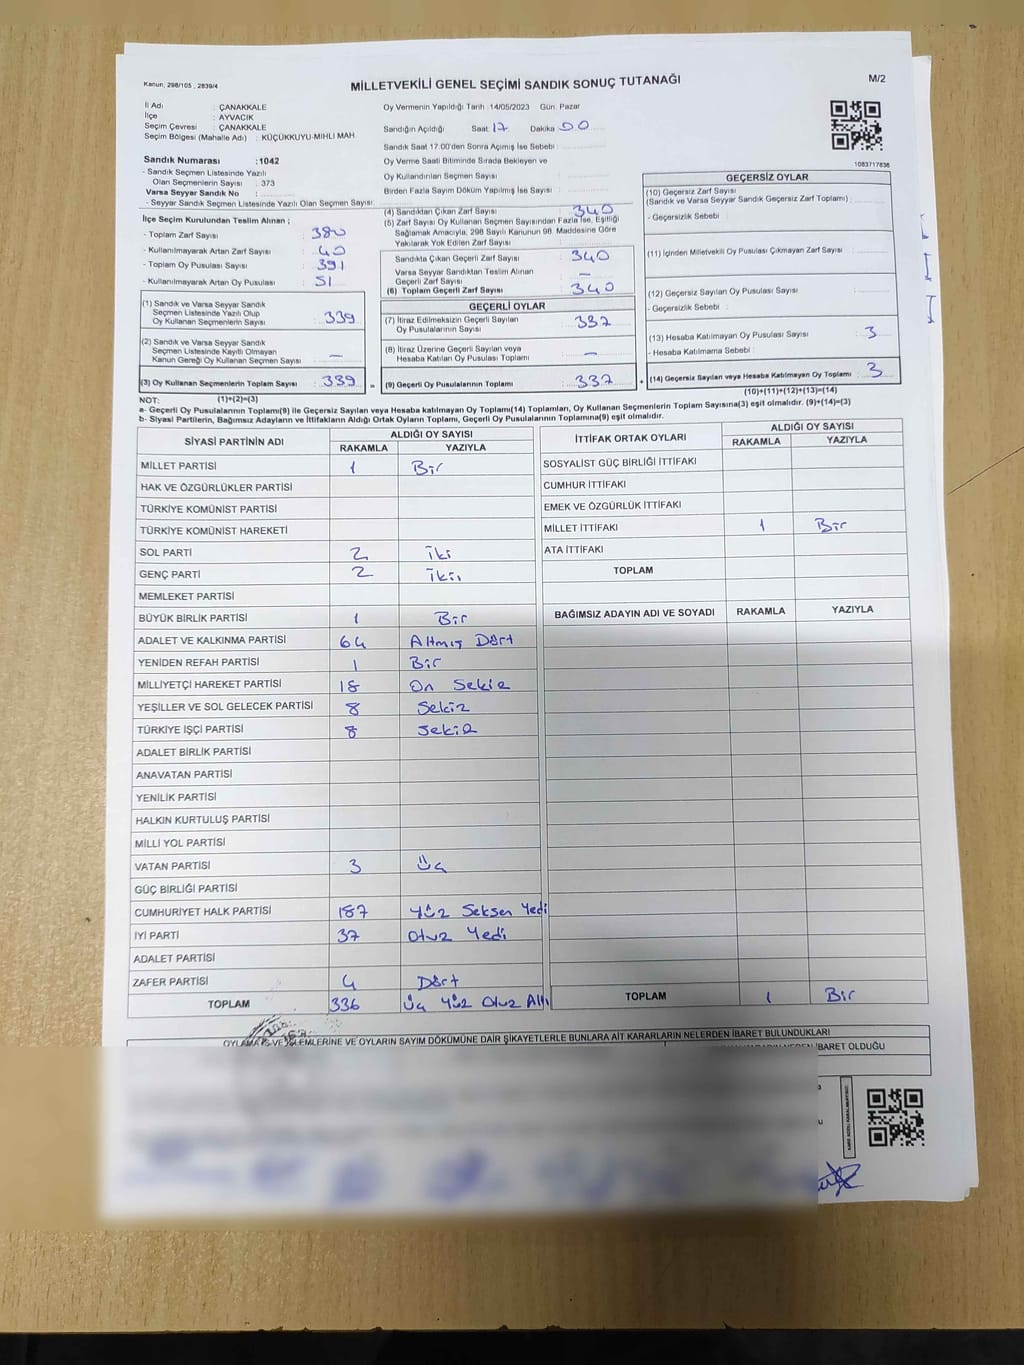 Kanun, 298/105 , 2839/4
MİLLETVEKİLİ GENEL SEÇİMİ SANDIK SONUÇ TUTANAĞI
M/2
İl Adı : ÇANAKKALE
İlçe : AYVACIK
Seçim Çevresi : ÇANAKKALE
Seçim Bölgesi (Mahalle Adı) : KÜÇÜKKUYU-MIHLI MAH.
Sandık Numarası :1042
- Sandık Seçmen Listesinde Yazılı
Olan Seçmenlerin Sayısı : 373
Varsa Seyyar Sandık No :
- Seyyar Sandık Seçmen Listesinde Yazılı Olan Seçmen Sayısı :
Oy Vermenin Yapıldığı Tarih :14/05/2023 Gün: Pazar
Sandığın Açıldığı Saat: 17 Dakika 00
Sandık Saat 17.00'den Sonra Açımış İse Sebebi :
Oy Verme Saati Bitiminde Sırada Bekleyen ve
Oy Kullandırılan Seçmen Sayısı :
Birden Fazla Sayım Döküm Yapılmış İse Sayısı :
1083717836
İlçe Seçim Kurulundan Teslim Alınan ;
- Toplam Zarf Sayısı : 380
- Kullanılmayarak Artan Zarf Sayısı : 40
- Toplam Oy Pusulası Sayısı : 391
- Kullanılmayarak Artan Oy Pusulası : 51
(1) Sandık ve Varsa Seyyar Sandık
Seçmen Listesinde Yazılı Olup
Oy Kullanan Seçmenlerin Sayısı : 339
(2) Sandık ve Varsa Seyyar Sandık
Seçmen Listesinde Kayıtlı Olmayan
Kanun Gereği Oy Kullanan Seçmen Sayısı : –
(3) Oy Kullanan Seçmenlerin Toplam Sayısı : 339 =
(4) Sandıktan Çıkan Zarf Sayısı : 340
(5) Zarf Sayısı Oy Kullanan Seçmen Sayısından Fazla İse, Eşitliği
Sağlamak Amacıyla, 298 Sayılı Kanunun 98. Maddesine Göre
Yakılarak Yok Edilen Zarf Sayısı :
Sandıkta Çıkan Geçerli Zarf Sayısı : 340
Varsa Seyyar Sandıktan Teslim Alınan
Geçerli Zarf Sayısı : –
(6) Toplam Geçerli Zarf Sayısı : 340
GEÇERLİ OYLAR
(7) İtiraz Edilmeksizin Geçerli Sayılan
Oy Pusulalarının Sayısı : 337
(8) İtiraz Üzerine Geçerli Sayılan veya
Hesaba Katılan Oy Pusulası Toplamı : –
(9) Geçerli Oy Pusulalarının Toplamı : 337 +
GEÇERSİZ OYLAR
(10) Geçersiz Zarf Sayısı
(Sandık ve Varsa Seyyar Sandık Geçersiz Zarf Toplamı) :
- Geçersizlik Sebebi :
(11) İçinden Milletvekili Oy Pusulası Çıkmayan Zarf Sayısı :
(12) Geçersiz Sayılan Oy Pusulası Sayısı :
- Geçersizlik Sebebi :
(13) Hesaba Katılmayan Oy Pusulası Sayısı : 3
- Hesaba Katılmama Sebebi :
(14) Geçersiz Sayılan veya Hesaba Katılmayan Oy Toplamı : 3
NOT: (1)+(2)=(3) (10)+(11)+(12)+(13)=(14)
a- Geçerli Oy Pusulalarının Toplamı(9) ile Geçersiz Sayılan veya Hesaba katılmayan Oy Toplamı(14) Toplamları, Oy Kullanan Seçmenlerin Toplam Sayısına(3) eşit olmalıdır. (9)+(14)=(3)
b- Siyasi Partilerin, Bağımsız Adayların ve İttifakların Aldığı Ortak Oyların Toplamı, Geçerli Oy Pusulalarının Toplamına(9) eşit olmalıdır.
SİYASİ PARTİNİN ADI ALDIĞI OY SAYISI
RAKAMLA YAZIYLA
MİLLET PARTİSİ 1 Bir
HAK VE ÖZGÜRLÜKLER PARTİSİ
TÜRKİYE KOMÜNİST PARTİSİ
TÜRKİYE KOMÜNİST HAREKETİ
SOL PARTİ 2 iki
GENÇ PARTİ 2 iki
MEMLEKET PARTİSİ
BÜYÜK BİRLİK PARTİSİ 1 Bir
ADALET VE KALKINMA PARTİSİ 64 Altmış Dört
YENİDEN REFAH PARTİSİ 1 Bir
MİLLİYETÇİ HAREKET PARTİSİ 18 On Sekiz
YEŞİLLER VE SOL GELECEK PARTİSİ 8 Sekiz
TÜRKİYE İŞÇİ PARTİSİ 8 Sekiz
ADALET BİRLİK PARTİSİ
ANAVATAN PARTİSİ
YENİLİK PARTİSİ
HALKIN KURTULUŞ PARTİSİ
MİLLİ YOL PARTİSİ
VATAN PARTİSİ 3 Üç
GÜÇ BİRLİĞİ PARTİSİ
CUMHURİYET HALK PARTİSİ 187 Yüz Seksen Yedi
İYİ PARTİ 37 Otuz Yedi
ADALET PARTİSİ
ZAFER PARTİSİ 4 Dört
TOPLAM 336 Üç Yüz Otuz Altı
İTTİFAK ORTAK OYLARI ALDIĞI OY SAYISI
RAKAMLA YAZIYLA
SOSYALİST GÜÇ BİRLİĞİ İTTİFAKI
CUMHUR İTTİFAKI
EMEK VE ÖZGÜRLÜK İTTİFAKI
MİLLET İTTİFAKI 1 Bir
ATA İTTİFAKI
TOPLAM
BAĞIMSIZ ADAYIN ADI VE SOYADI RAKAMLA YAZIYLA
TOPLAM 1 Bir
OYLAMA İŞ VE İŞLEMLERİNE VE OYLARIN SAYIM DÖKÜMÜNE DAİR ŞİKAYETLERLE BUNLARA AİT KARARLARIN NELERDEN İBARET BULUNDUKLARI
İBARET OLDUĞU